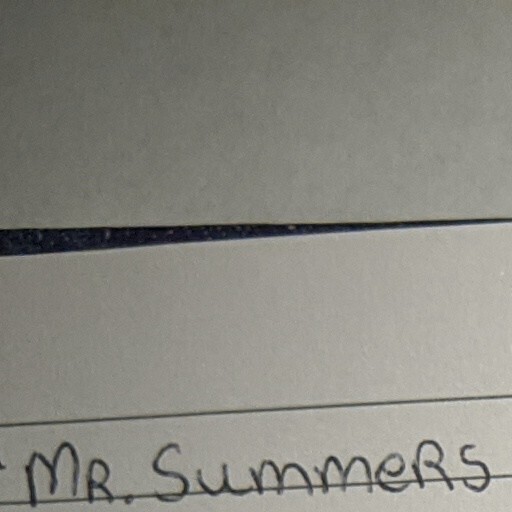 Mr. Summers